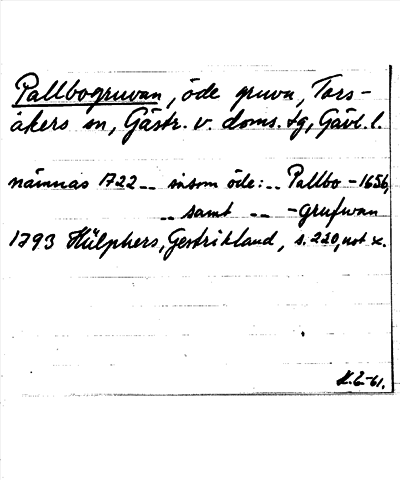 Pallbogruvan, öde gruva, Tors-
åkers sn, Gästr. v. doms. tg, Gävl. l.
nämnas 1722 -- såsom öde: -- Pallbo - 1656,
-- samt -- - grufwan
1793 Hülphers, Gestrikland, s. 220, not x.
K.E-61.